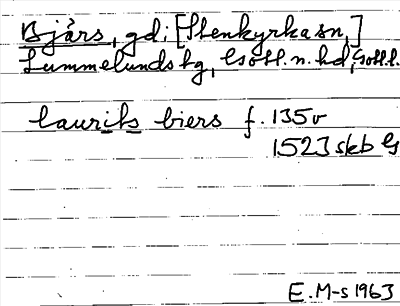 Bjärs, gd; [Stenkyrka sn,]
Lummelunds tg, Gotl. n. hd, Gotl. l.
lauriks biers f. 135v
1523 skb G
E. M-s 1963